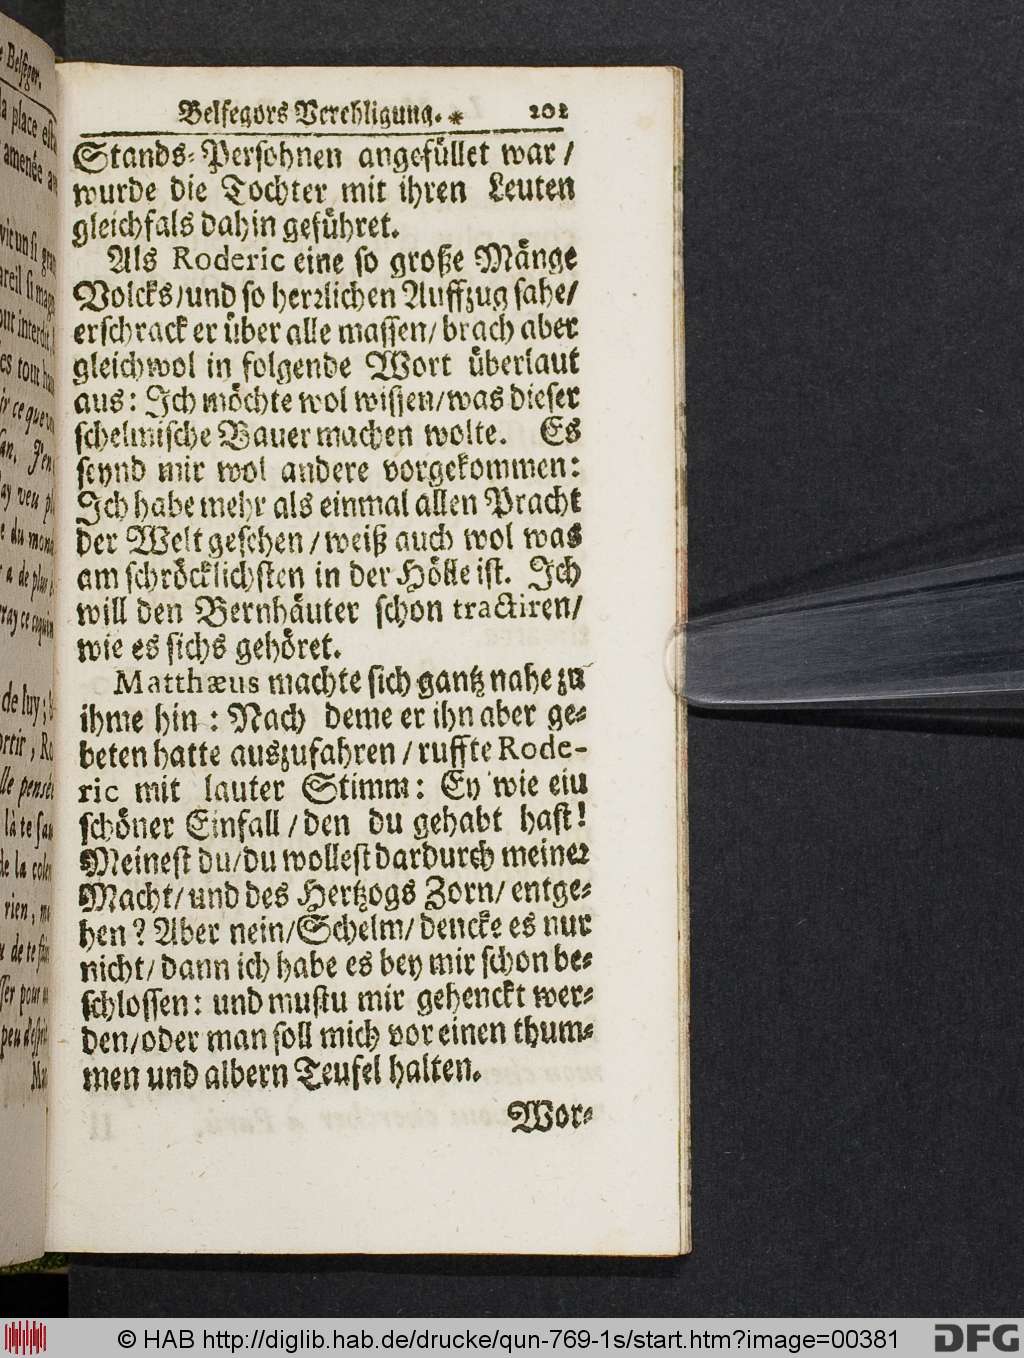 Belfegors Verehligung. * 201
Stands-Persohnen angefüllet war /
wurde die Tochter mit ihren Leuten
gleichfals dahin geführet.
Als Roderic eine so große Mänge
Volcks/und so herrlichen Auffzug sahe/
erschrack er über alle massen/ brach aber
gleichwol in folgende Wort überlaut
aus: Ich möchte wol wissen/was dieser
schelmische Bauer machen wolte. Es
seynd mir wol andere vorgekommen:
Ich habe mehr als einmal allen Pracht
der Welt gesehen / weiß auch wol was
am schröcklichsten in der Hölle ist. Ich
will den Bernhäuter schon tractiren/
wie es sichs gehöret.
Matthæus machte sich gantz nahe zu
ihme hin : Nach deme er ihn aber ge-
beten hatte auszufahren / ruffte Rode-
ric mit lauter Stimm: Ey wie eiu
schöner Einfall / den du gehabt hast!
Meinest du/du wollest dardurch meiner
Macht/ und des Hertzogs Zorn/ entge-
hen? Aber nein/Schelm/ dencke es nur
nicht/ dann ich habe es bey mir schon be-
schlossen: und mustu mir gehenckt wer-
den/oder man soll mich vor einen thum-
men und albern Teufel halten.
Wor-
e Belfegor.
la place
amenée
de luy ;
rien,
© HAB http://diglib.hab.de/drucke/qun-769-1s/start.htm?image=00381
DFG